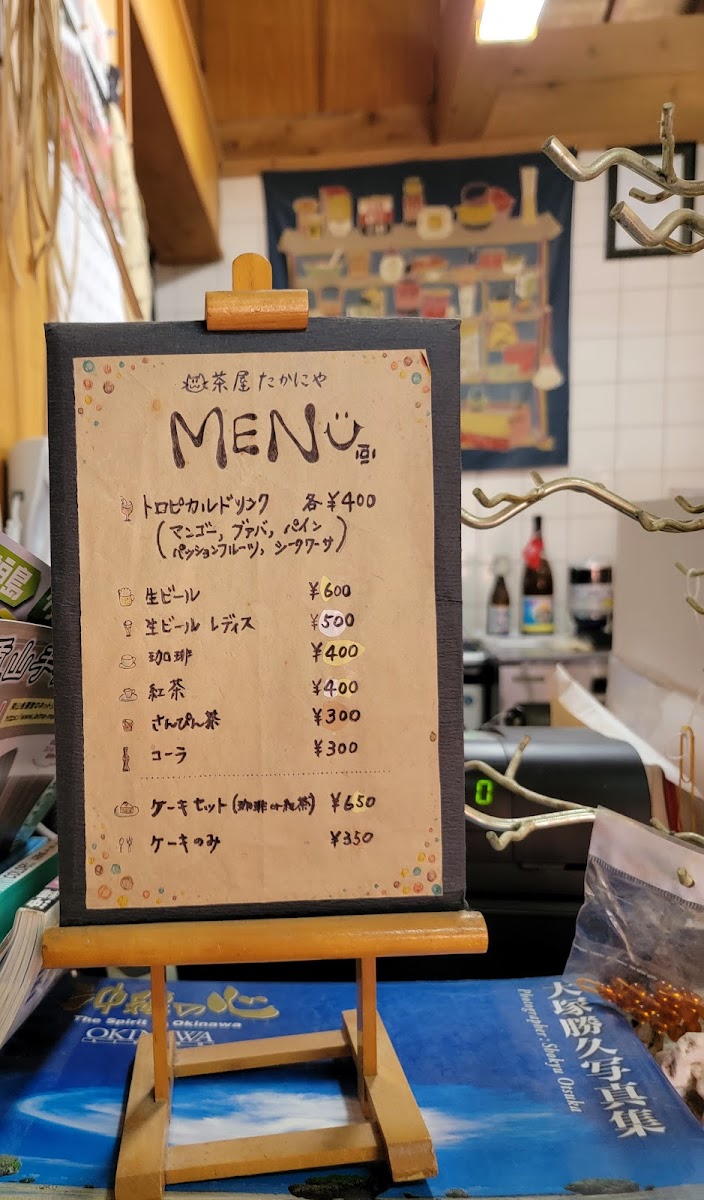 茶屋たかにや
MENU
トロピカルドリンク 各¥400
(マンゴー, グァバ, パイン
パッションフルーツ, シークワーサ)
生ビール ¥600
生ビール レディス ¥500
珈琲 ¥400
紅茶 ¥400
さんぴん茶 ¥300
コーラ ¥300
ケーキセット(珈琲or紅茶) ¥650
ケーキのみ ¥350
0
沖縄の心
The Spirit Okinawa
OKINAWA
大塚勝久写真集
Photographer: Shokyu Otsuka